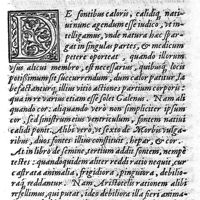 DE fontibus caloris, calidiq; nati-
ui nunc agendum esse iudico, vt in-
telligamus, vnde natura hæc spar-
gat in singulas partes, & medicum
petere oporteat, quando illorum
vsus alicui membro, est necessarius, quibusq; locis
potissimum sit succurrendum, dum calor patitur, læ-
befactanturq; illius vitio actiones partium corporis:
qua in re varia etiam esse solet Galeni. Nam ali
quando cor, aliquando verò non simpliciter ipsum
cor, sed sinistrum eius ventriculum, fontem natiui
calidi ponit. Alibi verò, vt sexto de Morbis vulga-
ribus, duos fontes illius constituit, hepar, & cor.
At in libro de semine, tertium addit fontem, nempè
testes: quandoquidem aliter reddi ratio nequit, cur
castrata animalia, frigidiora, pinguiora, debilio-
raq; reddantur. Nam, Aristotelis rationem alibi
refellimus, qui putat, ideo debiliora illa fieri anima-